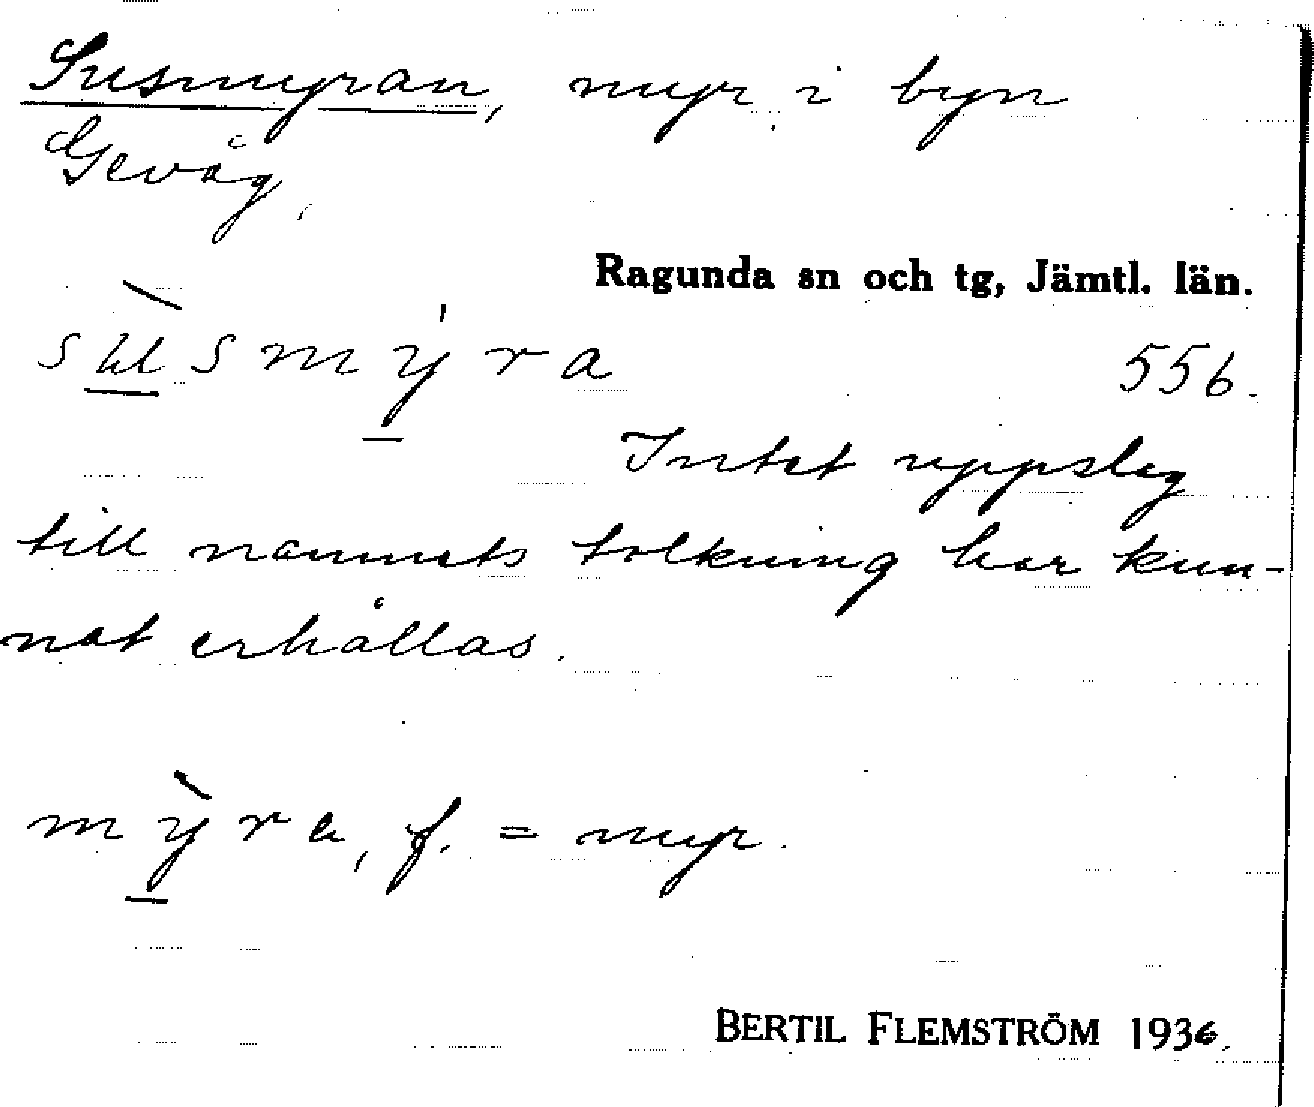 Susmyran, myr i byn
Gevåg.
Ragunda sn och tg, Jämtl. län.
556.
Intet uppslag
till namnets tolkning har kun-
nat erhållas.
mỳra, f. = myr.
BERTIL FLEMSTRÖM 1936.